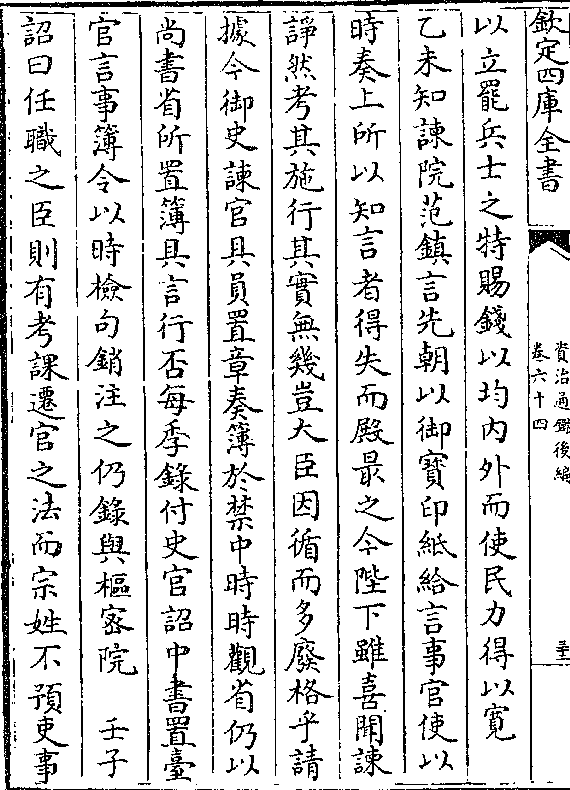 欽定四庫全書
資治通鑑後編
卷六十四
三十二
以立罷兵士之特賜錢以均內外而使民力得以寛
乙未知諫院范鎮言先朝以御寶印紙給言事官使以
時奏上所以知言者得失而殿最之今陛下雖喜聞諫
諍然考其施行其實無幾豈大臣因循而多廢格乎請
據今御史諫官具員置章奏簿於禁中時時觀省仍以
尚書省所置簿具言行否每季錄付史官詔中書置臺
官言事簿令以時檢句銷注之仍錄與樞宻院　壬子
詔曰任職之臣則有考課遷官之法而宗姓不預吏事